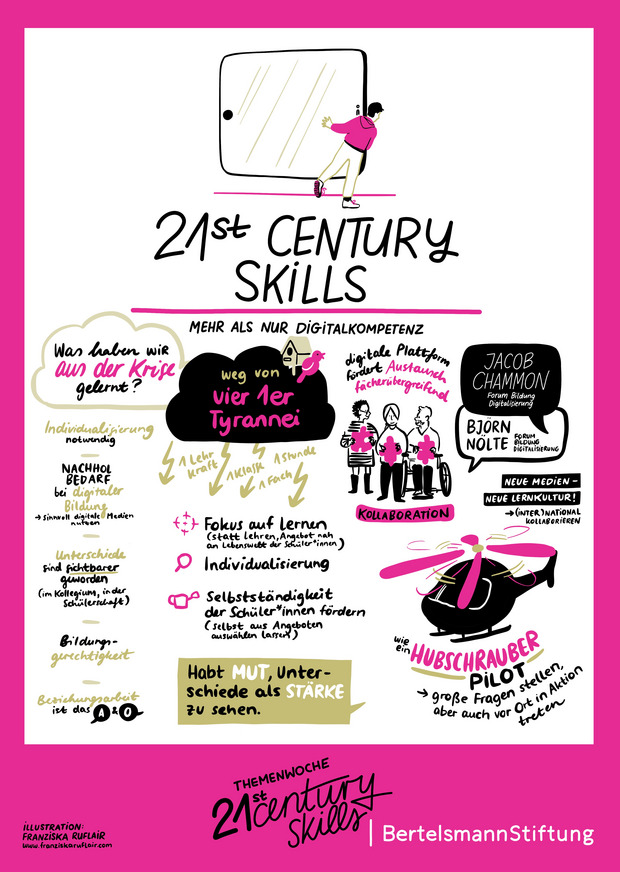 21st CENTURY
SKiLLS
MEHR ALS NUR DiGiTALKOMPETENZ
Was haben wir
aus der Krise
gelernt?
Individualisierung
notwendig
NACHHOL
BEDARF
bei digitaler
Bildung
→ sinnvoll digitale Medien
nutzen
Unterschiede
sind sichtbarer
geworden
(im Kollegium, in der
Schülerschaft)
Bildungs-
gerechtigkeit
Beziehungsarbeit
ist das A & O
weg von
vier 1er
Tyrannei
1 Lehr
kraft
1 Klasse
1 Fach
1 Stunde
Fokus auf Lernen
(statt Lehren, Angebot nah
an Lebenswelt der Schüler*innen)
Individualisierung
Selbstständigkeit
der Schüler*innen fördern
(selbst aus Angeboten
auswählen lassen)
Habt MUT, Unter-
schiede als STÄRKE
zu sehen.
digitale Plattform
fördert Austausch
fächerübergreifend
KOLLABORATION
JACOB
CHAMMON
Forum Bildung
Digitalisierung
BJÖRN
NÖLTE
FORUM
BILDUNG
DIGITALISIERUNG
NEUE MEDIEN –
NEUE LERNKULTUR!
→ (INTER)NATIONAL
KOLLABORIEREN
wie
ein
HUBSCHRAUBER
PiLOT
→ große Fragen stellen,
aber auch vor Ort in Aktion
treten
THEMENWOCHE
21st century
Skills
| BertelsmannStiftung
iLLUSTRATION:
FRANZISKA RUFLAIR
www.franziskaruflair.com